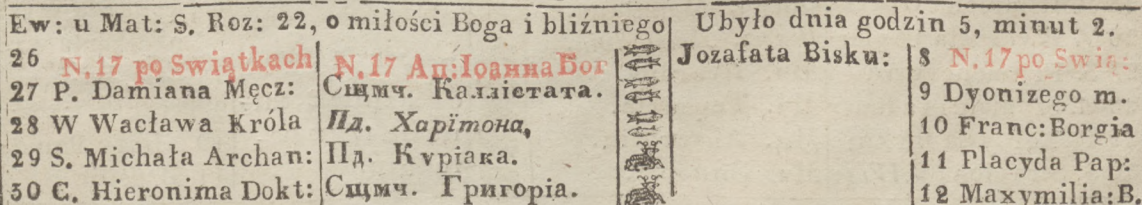 Ew: u Mat: S. Roz: 22, o miłości Boga i bliźniego Ubyło dnia godzin 5, minut 2.
26 N. 17 po Swiątkach N. 17 Ап: Іоанна Бог Jozafata Bisku: 8 N. 17 po Swią:
27 P. Damiana Męcz: Сщмч. Каллістата. 9 Dyonizego m.
28 W Wacława Króla Пд. Харїтона, 10 Franc: Borgia
29 S. Michała Archan: Пд. Кѵріака. 11 Placyda Pap:
30 C. Hieronima Dokt: Сщмч. Григоріа. 12 Maxymilia: B.